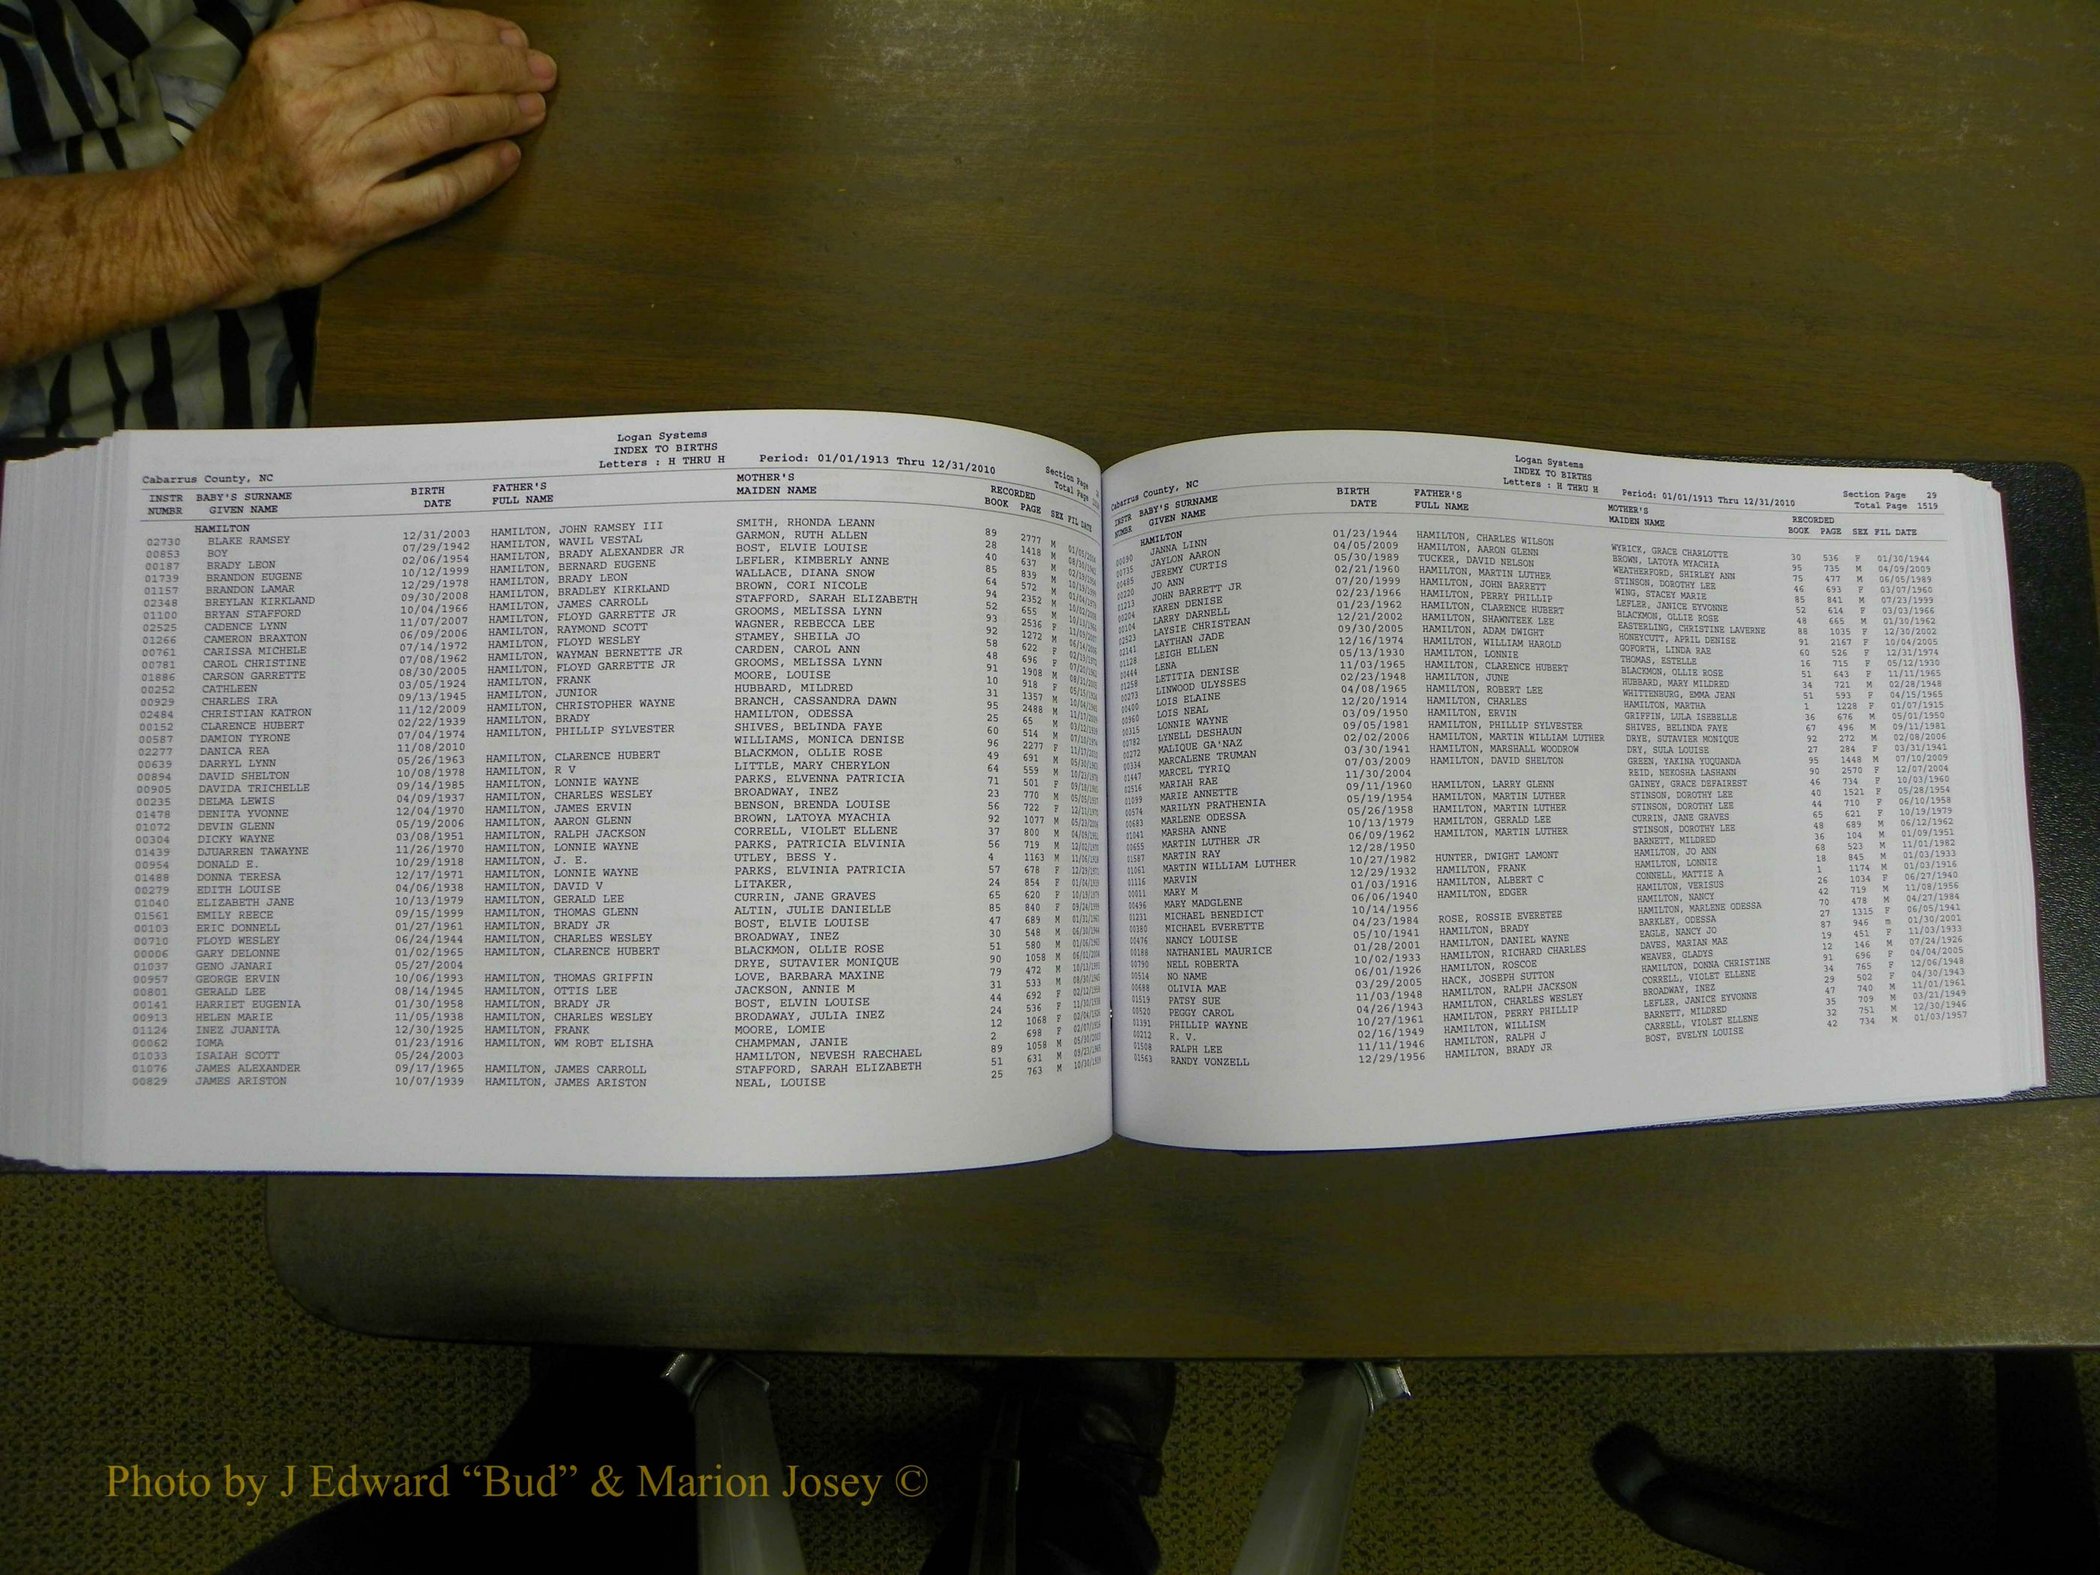 Logan Systems
INDEX TO BIRTHS
Cabarrus County, NC Letters : H THRU H Period: 01/01/1913 Thru 12/31/2010 Section Page
Total Page
INSTR BABY'S SURNAME BIRTH FATHER'S MOTHER'S RECORDED
NUMBR GIVEN NAME DATE FULL NAME MAIDEN NAME BOOK PAGE SEX FIL DATE
HAMILTON
02730 BLAKE RAMSEY 12/31/2003 HAMILTON, JOHN RAMSEY III SMITH, RHONDA LEANN 89 2777 M
00853 BOY 07/29/1942 HAMILTON, WAVIL VESTAL GARMON, RUTH ALLEN 28 1418 M
00187 BRADY LEON 02/06/1954 HAMILTON, BRADY ALEXANDER JR BOST, ELVIE LOUISE 40 637 M
01739 BRANDON EUGENE 10/12/1999 HAMILTON, BERNARD EUGENE LEFLER, KIMBERLY ANNE 85 839 M
01157 BRANDON LAMAR 12/29/1978 HAMILTON, BRADY LEON WALLACE, DIANA SNOW 64 572 M
02348 BREYLAN KIRKLAND 09/30/2008 HAMILTON, BRADLEY KIRKLAND BROWN, CORI NICOLE 94 2352 M
01100 BRYAN STAFFORD 10/04/1966 HAMILTON, JAMES CARROLL STAFFORD, SARAH ELIZABETH 52 655 M
02525 CADENCE LYNN 11/07/2007 HAMILTON, FLOYD GARRETTE JR GROOMS, MELISSA LYNN 93 2536 F
01266 CAMERON BRAXTON 06/09/2006 HAMILTON, RAYMOND SCOTT WAGNER, REBECCA LEE 92 1272 M
00761 CARISSA MICHELE 07/14/1972 HAMILTON, FLOYD WESLEY STAMEY, SHEILA JO 58 622 F
00781 CAROL CHRISTINE 07/08/1962 HAMILTON, WAYMAN BERNETTE JR CARDEN, CAROL ANN 48 696 F
01886 CARSON GARRETTE 08/30/2005 HAMILTON, FLOYD GARRETTE JR GROOMS, MELISSA LYNN 91 1908 M
00252 CATHLEEN 03/05/1924 HAMILTON, FRANK MOORE, LOUISE 10 918 F
00929 CHARLES IRA 09/13/1945 HAMILTON, JUNIOR HUBBARD, MILDRED 31 1357 M
02484 CHRISTIAN KATRON 11/12/2009 HAMILTON, CHRISTOPHER WAYNE BRANCH, CASSANDRA DAWN 95 2488 M
00152 CLARENCE HUBERT 02/22/1939 HAMILTON, BRADY HAMILTON, ODESSA 25 65 M
00587 DAMION TYRONE 07/04/1974 HAMILTON, PHILLIP SYLVESTER SHIVES, BELINDA FAYE 60 514 M
02277 DANICA REA 11/08/2010 WILLIAMS, MONICA DENISE 96 2277 F
00639 DARRYL LYNN 05/26/1963 HAMILTON, CLARENCE HUBERT BLACKMON, OLLIE ROSE 49 691 M
00894 DAVID SHELTON 10/08/1978 HAMILTON, R V LITTLE, MARY CHERYLON 64 559 M
00905 DAVIDA TRICHELLE 09/14/1985 HAMILTON, LONNIE WAYNE PARKS, ELVENNA PATRICIA 71 501 F
00235 DELMA LEWIS 04/09/1937 HAMILTON, CHARLES WESLEY BROADWAY, INEZ 23 770 M
01478 DENITA YVONNE 12/04/1970 HAMILTON, JAMES ERVIN BENSON, BRENDA LOUISE 56 722 F
01072 DEVIN GLENN 05/19/2006 HAMILTON, AARON GLENN BROWN, LATOYA MYACHIA 92 1077 M
00304 DICKY WAYNE 03/08/1951 HAMILTON, RALPH JACKSON CORRELL, VIOLET ELLENE 37 800 M
01439 DJUARREN TAWAYNE 11/26/1970 HAMILTON, LONNIE WAYNE PARKS, PATRICIA ELVINIA 56 719 M
00954 DONALD E. 10/29/1918 HAMILTON, J. E. UTLEY, BESS Y. 4 1163 M
01488 DONNA TERESA 12/17/1971 HAMILTON, LONNIE WAYNE PARKS, ELVINIA PATRICIA 57 678 F
00279 EDITH LOUISE 04/06/1938 HAMILTON, DAVID V LITAKER, 24 854 F
01040 ELIZABETH JANE 10/13/1979 HAMILTON, GERALD LEE CURRIN, JANE GRAVES 65 620 F
01561 EMILY REECE 09/15/1999 HAMILTON, THOMAS GLENN ALTIN, JULIE DANIELLE 85 840 F
00103 ERIC DONNELL 01/27/1961 HAMILTON, BRADY JR BOST, ELVIE LOUISE 47 689 M
00710 FLOYD WESLEY 06/24/1944 HAMILTON, CHARLES WESLEY BROADWAY, INEZ 30 548 M
00006 GARY DELONNE 01/02/1965 HAMILTON, CLARENCE HUBERT BLACKMON, OLLIE ROSE 51 580 M
01037 GENO JANARI 05/27/2004 DRYE, SUTAVIER MONIQUE 90 1058 M
00957 GEORGE ERVIN 10/06/1993 HAMILTON, THOMAS GRIFFIN LOVE, BARBARA MAXINE 79 472 M
00801 GERALD LEE 08/14/1945 HAMILTON, OTTIS LEE JACKSON, ANNIE M 31 533 M
00141 HARRIET EUGENIA 01/30/1958 HAMILTON, BRADY JR BOST, ELVIN LOUISE 44 692 F
00913 HELEN MARIE 11/05/1938 HAMILTON, CHARLES WESLEY BRODAWAY, JULIA INEZ 24 536 F
01124 INEZ JUANITA 12/30/1925 HAMILTON, FRANK MOORE, LOMIE 12 1068 F
00062 IOMA 01/23/1916 HAMILTON, WM ROBT ELISHA CHAMPMAN, JANIE 2 698 F
01033 ISAIAH SCOTT 05/24/2003 HAMILTON, NEVESH RAECHAEL 89 1058 M
01076 JAMES ALEXANDER 09/17/1965 HAMILTON, JAMES CARROLL STAFFORD, SARAH ELIZABETH 51 631 M
00829 JAMES ARISTON 10/07/1939 HAMILTON, JAMES ARISTON NEAL, LOUISE 25 763 M
Logan Systems
INDEX TO BIRTHS
Cabarrus County, NC Letters : H THRU H Period: 01/01/1913 Thru 12/31/2010 Section Page 29
Total Page 1519
INSTR BABY'S SURNAME BIRTH FATHER'S MOTHER'S RECORDED
NUMBR GIVEN NAME DATE FULL NAME MAIDEN NAME BOOK PAGE SEX FIL DATE
HAMILTON
00090 JANNA LINN 01/23/1944 HAMILTON, CHARLES WILSON WYRICK, GRACE CHARLOTTE 30 536 F 01/30/1944
00735 JAYLON AARON 04/05/2009 HAMILTON, AARON GLENN BROWN, LATOYA MYACHIA 95 735 M 04/09/2009
00485 JEREMY CURTIS 05/30/1989 TUCKER, DAVID NELSON WEATHERFORD, SHIRLEY ANN 75 477 M 06/05/1989
00220 JO ANN 02/21/1960 HAMILTON, MARTIN LUTHER STINSON, DOROTHY LEE 46 693 F 03/07/1960
01213 JOHN BARRETT JR 07/20/1999 HAMILTON, JOHN BARRETT WING, STACEY MARIE 85 841 M 07/23/1999
00204 KAREN DENISE 02/23/1966 HAMILTON, PERRY PHILLIP LEFLER, JANICE EYVONNE 52 614 F 03/03/1966
00104 LARRY DARNELL 01/23/1962 HAMILTON, CLARENCE HUBERT BLACKMON, OLLIE ROSE 48 665 M 01/30/1962
02523 LAYSIE CHRISTEAN 12/21/2002 HAMILTON, SHAWNTEEK LEE EASTERLING, CHRISTINE LAVERNE 88 1035 F 12/30/2002
02141 LAYTHAN JADE 09/30/2005 HAMILTON, ADAM DWIGHT HONEYCUTT, APRIL DENISE 91 2167 F 10/04/2005
01128 LEIGH ELLEN 12/16/1974 HAMILTON, WILLIAM HAROLD GOFORTH, LINDA RAE 60 526 F 12/31/1974
00444 LENA 05/13/1930 HAMILTON, LONNIE THOMAS, ESTELLE 16 715 F 05/12/1930
01258 LETITIA DENISE 11/03/1965 HAMILTON, CLARENCE HUBERT BLACKMON, OLLIE ROSE 51 643 F 11/11/1965
00273 LINWOOD ULYSSES 02/23/1948 HAMILTON, JUNE HUBBARD, MARY MILDRED 34 721 M 02/28/1948
00400 LOIS ELAINE 04/08/1965 HAMILTON, ROBERT LEE WHITTENBURG, EMMA JEAN 51 593 F 04/15/1965
00960 LOIS NEAL 12/20/1914 HAMILTON, CHARLES HAMILTON, MARTHA 1 1228 F 01/07/1915
00315 LONNIE WAYNE 03/09/1950 HAMILTON, ERVIN GRIFFIN, LULA ISEBELLE 36 676 M 05/01/1950
00782 LYNELL DESHAUN 09/05/1981 HAMILTON, PHILLIP SYLVESTER SHIVES, BELINDA FAYE 67 496 M 09/11/1981
00272 MALIQUE GA'NAZ 02/02/2006 HAMILTON, MARTIN WILLIAM LUTHER DRYE, SUTAVIER MONIQUE 92 272 M 02/08/2006
00334 MARCALENE TRUMAN 03/30/1941 HAMILTON, MARSHALL WOODROW DRY, SULA LOUISE 27 284 F 03/31/1941
01447 MARCEL TYRIQ 07/03/2009 HAMILTON, DAVID SHELTON GREEN, YAKINA YUQUANDA 95 1448 M 07/10/2009
02516 MARIAH RAE 11/30/2004 REID, NEKOSHA LASHANN 90 2570 F 12/07/2004
01099 MARIE ANNETTE 09/11/1960 HAMILTON, LARRY GLENN GAINEY, GRACE DEFAIREST 46 734 F 10/03/1960
00574 MARILYN PRATHENIA 05/19/1954 HAMILTON, MARTIN LUTHER STINSON, DOROTHY LEE 40 1521 F 05/28/1954
00683 MARLENE ODESSA 05/26/1958 HAMILTON, MARTIN LUTHER STINSON, DOROTHY LEE 44 710 F 06/10/1958
01041 MARSHA ANNE 10/13/1979 HAMILTON, GERALD LEE CURRIN, JANE GRAVES 65 621 F 10/19/1979
00655 MARTIN LUTHER JR 06/09/1962 HAMILTON, MARTIN LUTHER STINSON, DOROTHY LEE 48 689 M 06/12/1962
01587 MARTIN RAY 12/28/1950 BARNETT, MILDRED 36 104 M 01/09/1951
01061 MARTIN WILLIAM LUTHER 10/27/1982 HUNTER, DWIGHT LAMONT HAMILTON, JO ANN 68 523 M 11/01/1982
01116 MARVIN 12/29/1932 HAMILTON, FRANK HAMILTON, LONNIE 18 845 M 01/03/1933
00011 MARY M 01/03/1916 HAMILTON, ALBERT C CONNELL, MATTIE A 1 1174 M 01/03/1916
00496 MARY MADGLENE 06/06/1940 HAMILTON, EDGER HAMILTON, VERISUS 26 1034 F 06/27/1940
01231 MICHAEL BENEDICT 10/14/1956 HAMILTON, NANCY 42 719 M 11/08/1956
00380 MICHAEL EVERETTE 04/23/1984 ROSE, ROSSIE EVERETEE HAMILTON, MARLENE ODESSA 70 478 M 04/27/1984
00476 NANCY LOUISE 05/10/1941 HAMILTON, BRADY BARKLEY, ODESSA 27 1315 F 06/05/1941
00188 NATHANIEL MAURICE 01/28/2001 HAMILTON, DANIEL WAYNE EAGLE, NANCY JO 87 946 m 01/30/2001
00790 NELL ROBERTA 10/02/1933 HAMILTON, RICHARD CHARLES DAVES, MARIAN MAE 19 451 F 11/03/1933
00514 NO NAME 06/01/1926 HAMILTON, ROSCOE WEAVER, GLADYS 12 146 M 07/24/1926
00688 OLIVIA MAE 03/29/2005 HACK, JOSEPH SUTTON HAMILTON, DONNA CHRISTINE 91 696 F 04/04/2005
01519 PATSY SUE 11/03/1948 HAMILTON, RALPH JACKSON CORRELL, VIOLET ELLENE 34 765 F 12/06/1948
00520 PEGGY CAROL 04/26/1943 HAMILTON, CHARLES WESLEY BROADWAY, INEZ 29 502 F 04/30/1943
01391 PHILLIP WAYNE 10/27/1961 HAMILTON, PERRY PHILLIP LEFLER, JANICE EYVONNE 47 740 M 11/01/1961
00212 R. V. 02/16/1949 HAMILTON, WILLISM BARNETT, MILDRED 35 709 M 03/21/1949
01508 RALPH LEE 11/11/1946 HAMILTON, RALPH J CARRELL, VIOLET ELLENE 32 751 M 12/30/1946
01563 RANDY VONZELL 12/29/1956 HAMILTON, BRADY JR BOST, EVELYN LOUISE 42 734 M 01/03/1957
Photo by J Edward “Bud” & Marion Josey ©